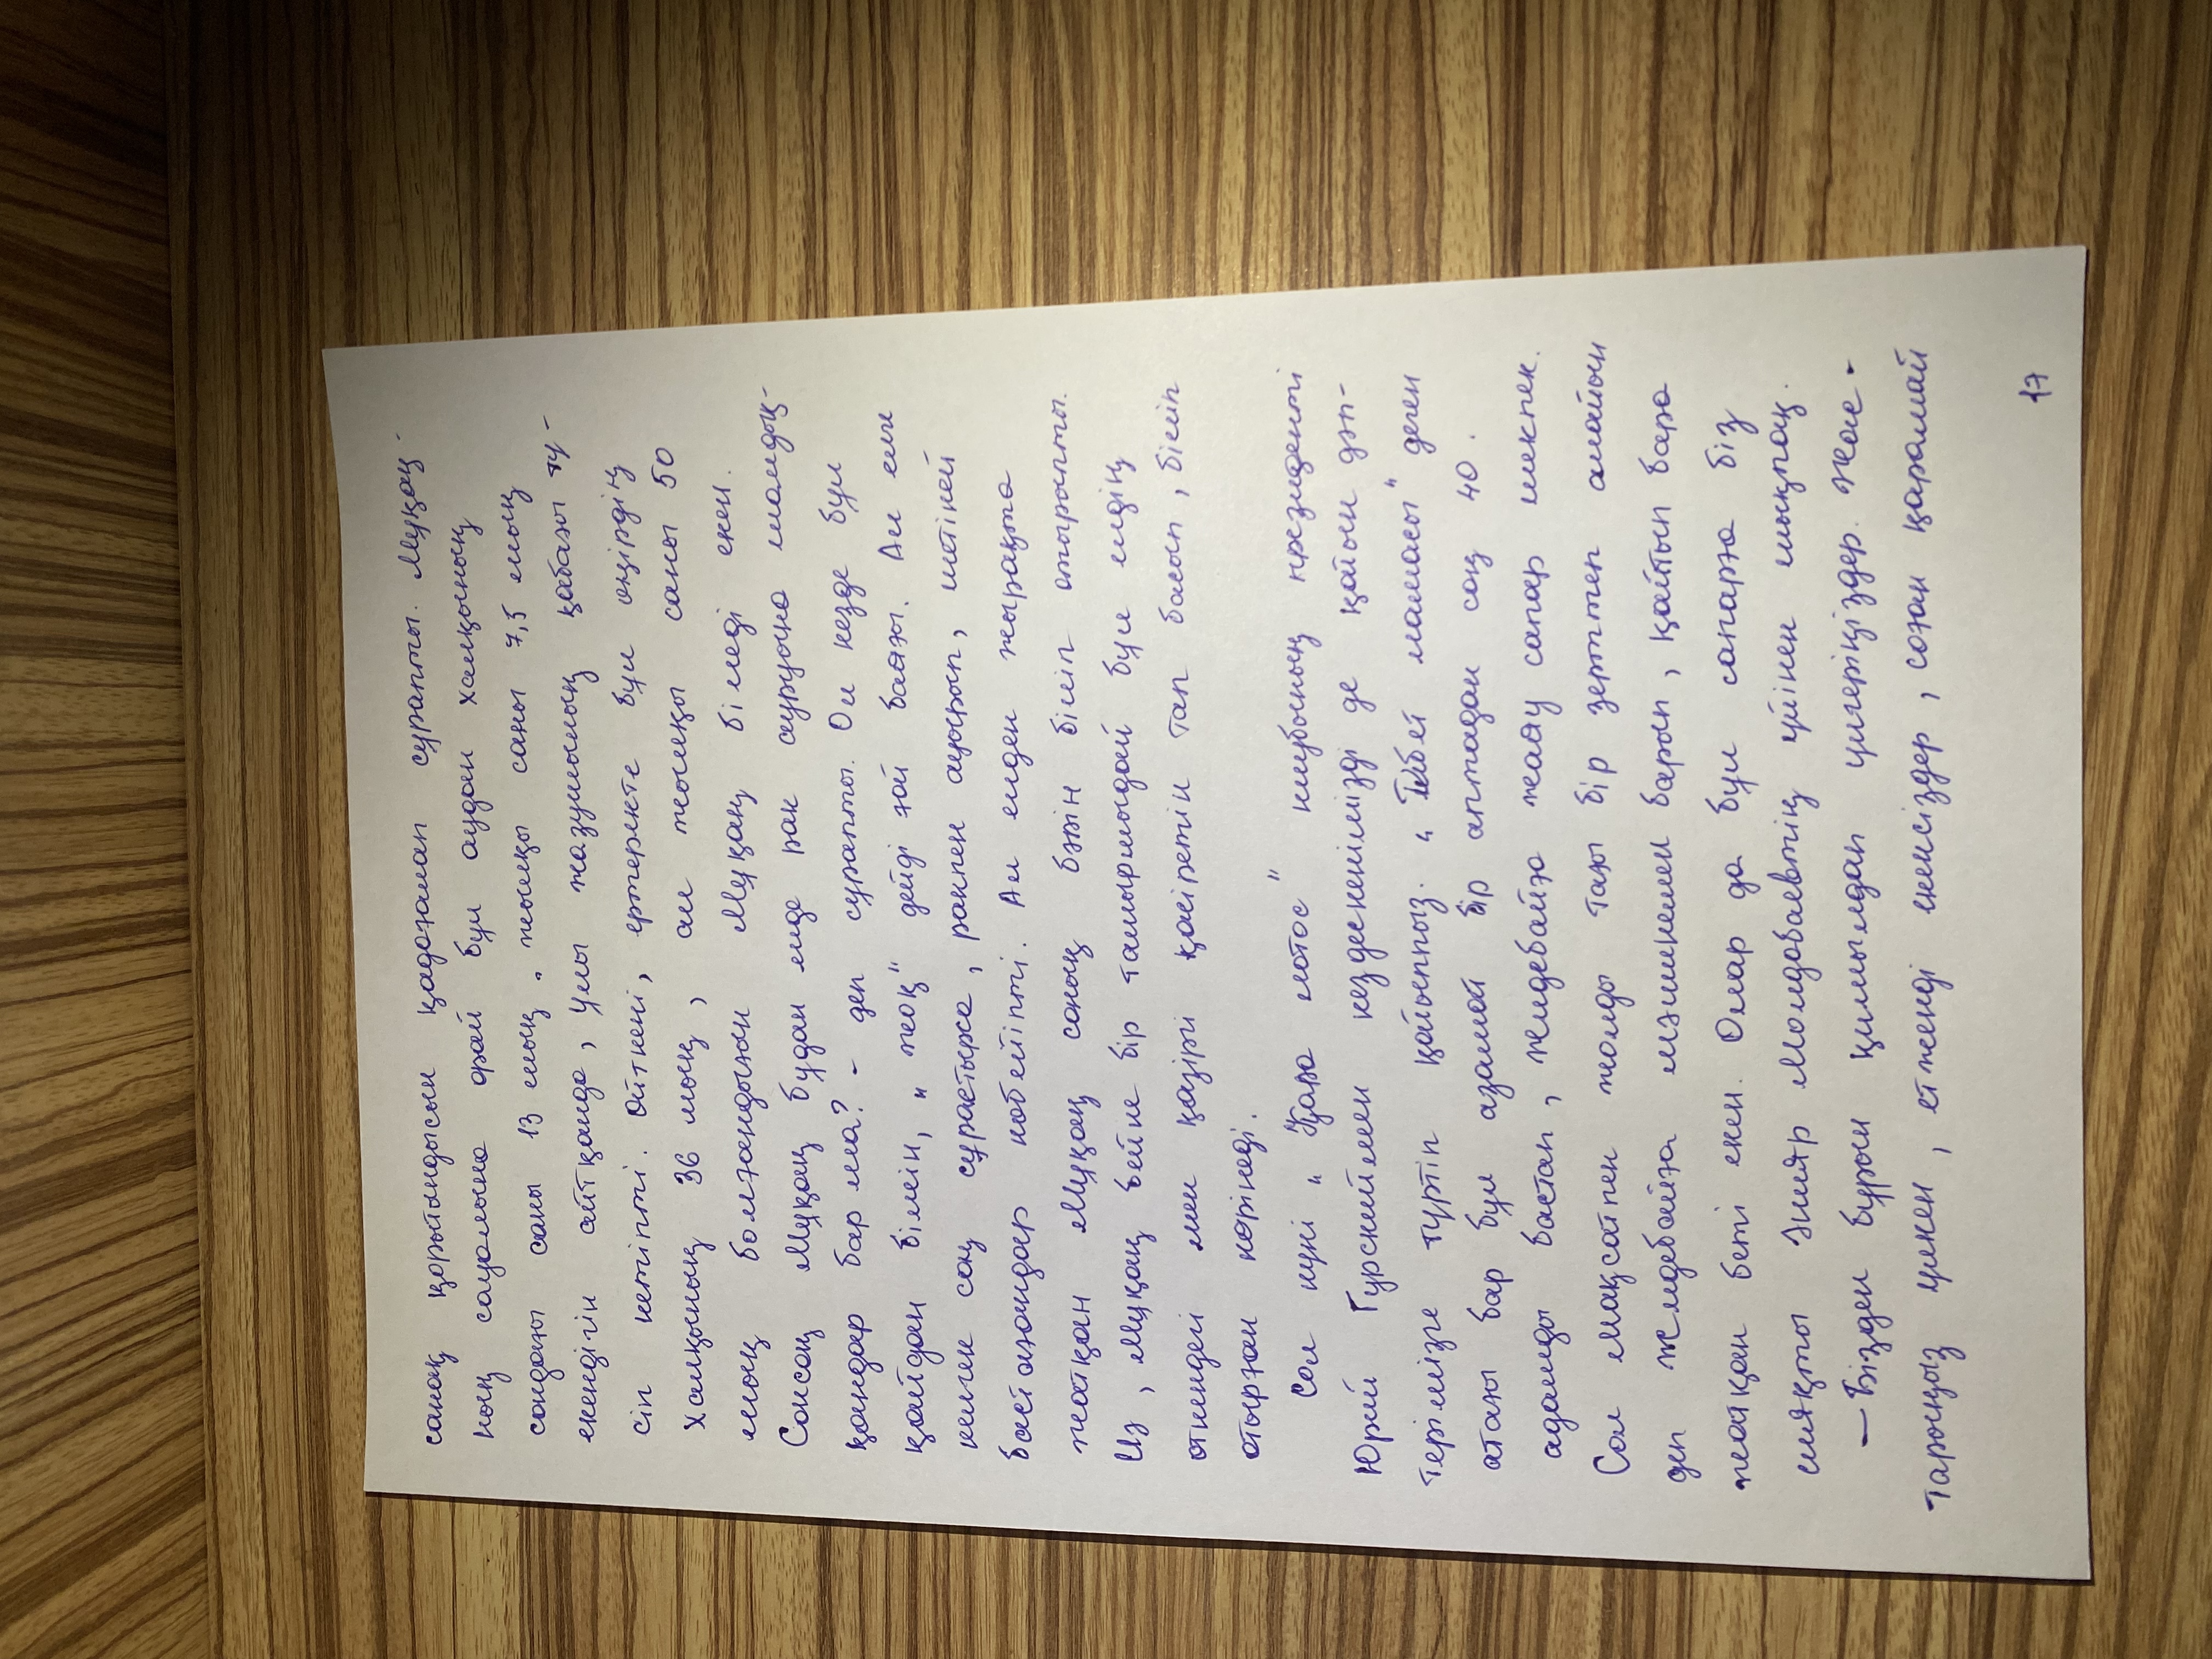 санақ қорытындысын қадағалап сұрапты. Мұқаң-
ның сауалына орай бұл аудан халқының
сондағы саны 13 мың, жылқы саны 7,5 мың
екендігін айтқанда, ұлы жазушының қабағы тү-
сіп кетіпті. Өйткені, ертеректе бұл өңірдің
халқының 36 мың, ал жылқы саны 50
мың болғандығын Мұқаң біледі екен.
Сонсоң Мұқаң бұдан елде рак ауруына шалдық-
қандар бар ма? - деп сұрапты. Ол кезде бұл
қайдан білсін, „жоқ" дейді ғой баяғы. Ал елге
келген соң сұрастырса, ракпен ауырып, шетіней
бастағандар көбейіпті. Ал елден жырақта
жатқан Мұқаң соның бәрін біліп отырыпты.
Иә, Мұқаң бейне бір тамыршыдай бұл елдің
өткендегі мен қазіргі қасіретін тап басып, біліп
отырған көрінеді.
Сол күні „Қара лотос" клубының президенті
Юрий Гурскиймен кездескенімізді де қойын дәп-
терімізге түртіп қойыппыз. „Тибет ламасы" деген
атағы бар бұл азамат бір аптадан соң 40
адамды бастап, Жидебайға жаяу сапар шекпек.
Сол мақсатпен жолды тағы бір зерттеп алайын
деп Жидебайға мәшинемен барып, қайтып бара
жатқан беті екен. Олар да бұл сапарға біз
сияқты Әнияр Молдабаевтың үйінен шықпақ.
— Бізден бұрын қимылдап үлгеріңіздер. Жас-
тарыңыз үлкен, етженді екенсіздер, соған қарамай
17